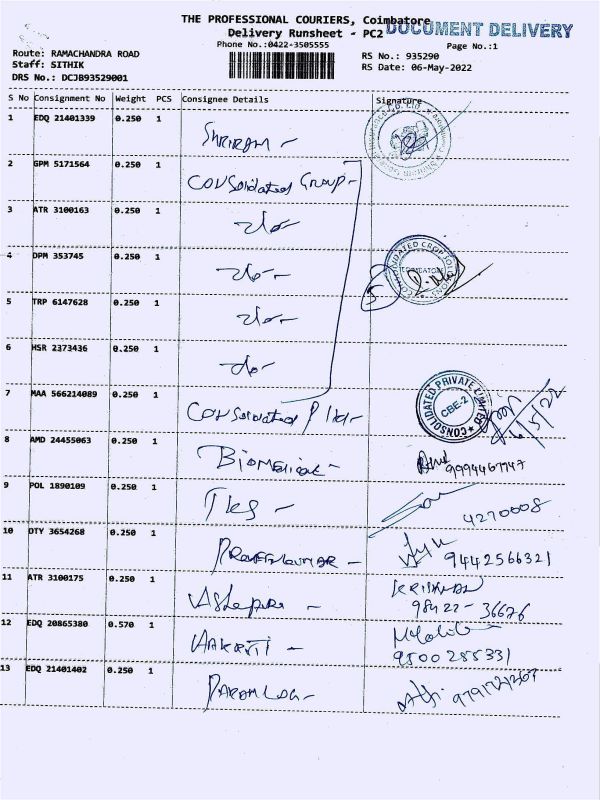 THE PROFESSIONAL COURIERS, Coimbatore
DOCUMENT DELIVERY
Delivery Runsheet - PC2
Phone No.:0422-3505555
Page No.:1
Route: RAMACHANDRA ROAD
Staff: SITHIK
DRS No.: DCJB93529001
RS No.: 935290
RS Date: 06-May-2022
S No Consignment No Weight PCS Consignee Details Signature
1 EDQ 21401339 0.250 1
SHRIRAM -
2 GPM 5171564 0.250 1
Consolidated Group -
3 ATR 3100163 0.250 1
-do-
4 DPM 353745 0.250 1
-do-
CONSOLIDATED CROP SOLUTIONS
COIMBATORE
5 TRP 6147628 0.250 1
-do-
5
6 HSR 2373436 0.250 1
-do-
7 MAA 566214089 0.250 1
Consolidated P ltd -
CONSOLIDATED PRIVATE LIMITED
CBE-2
6/5/22
8 AMD 24455063 0.250 1
Biomedical -
9994467747
9 POL 1890109 0.250 1
4270008
10 OTY 3654268 0.250 1
PRAVEENKUMAR -
9442566321
11 ATR 3100175 0.250 1
KRISHNAN
98422-36676
12 EDQ 20865380 0.570 1
9500285331
13 EDQ 21401402 0.250 1